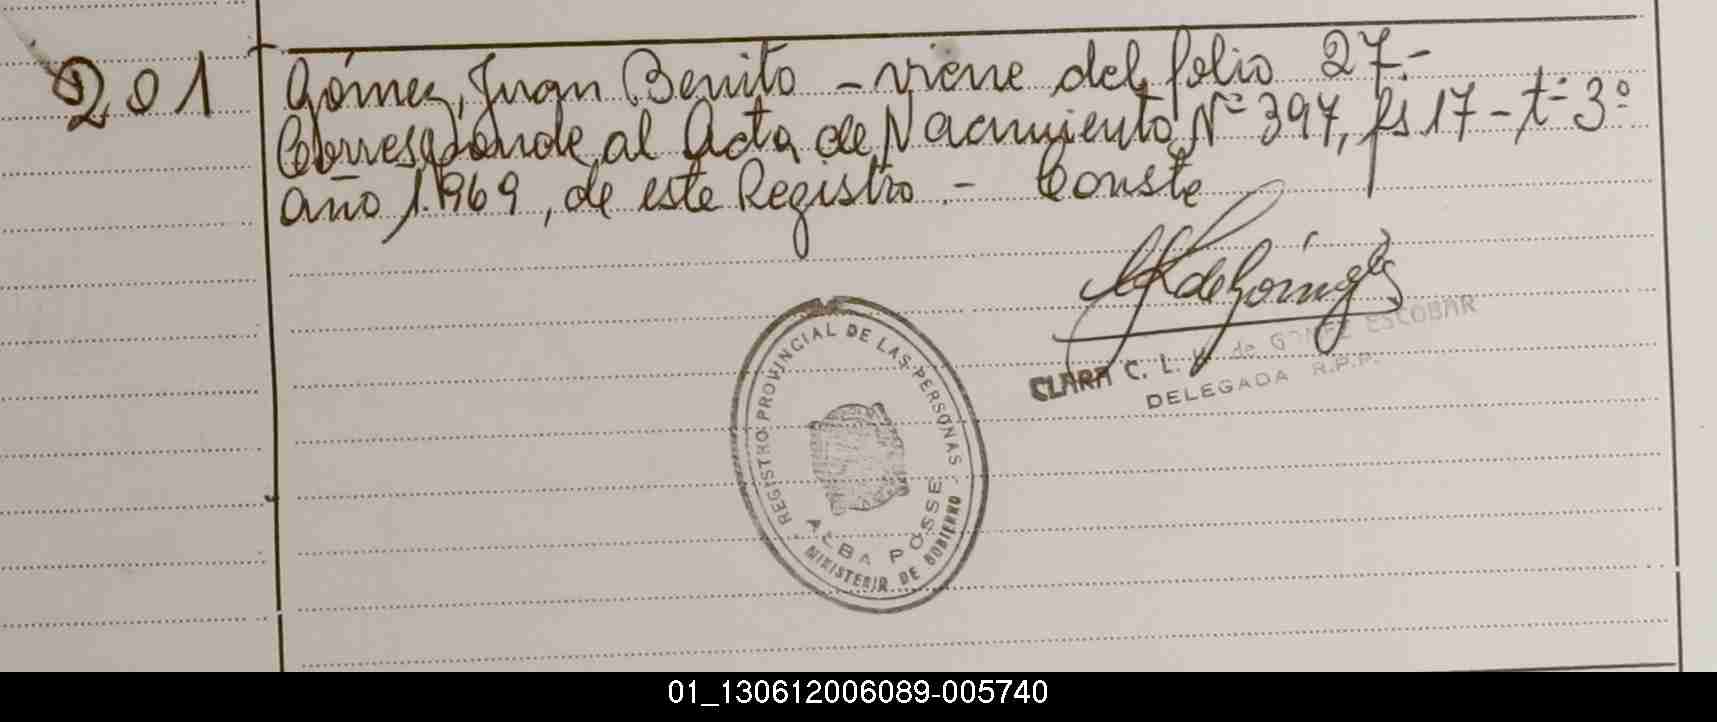 201
Gómez, Juan Benito - viene del folio 27.-
Corresponde al Acta de Nacimiento Nº 397, fs 17 - tº 3º
año 1.969, de este Registro. - Conste
CLARA C. L. V. de GOMEZ ESCOBAR
DELEGADA R.P.P.
REGISTRO PROVINCIAL DE LAS PERSONAS
ALBA POSSE
MINISTERIO DE GOBIERNO
01_130612006089-005740